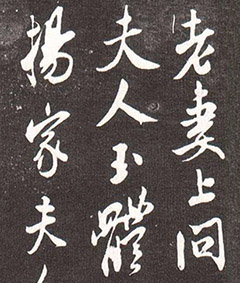 老妻上问
夫人玉體
揚家夫人